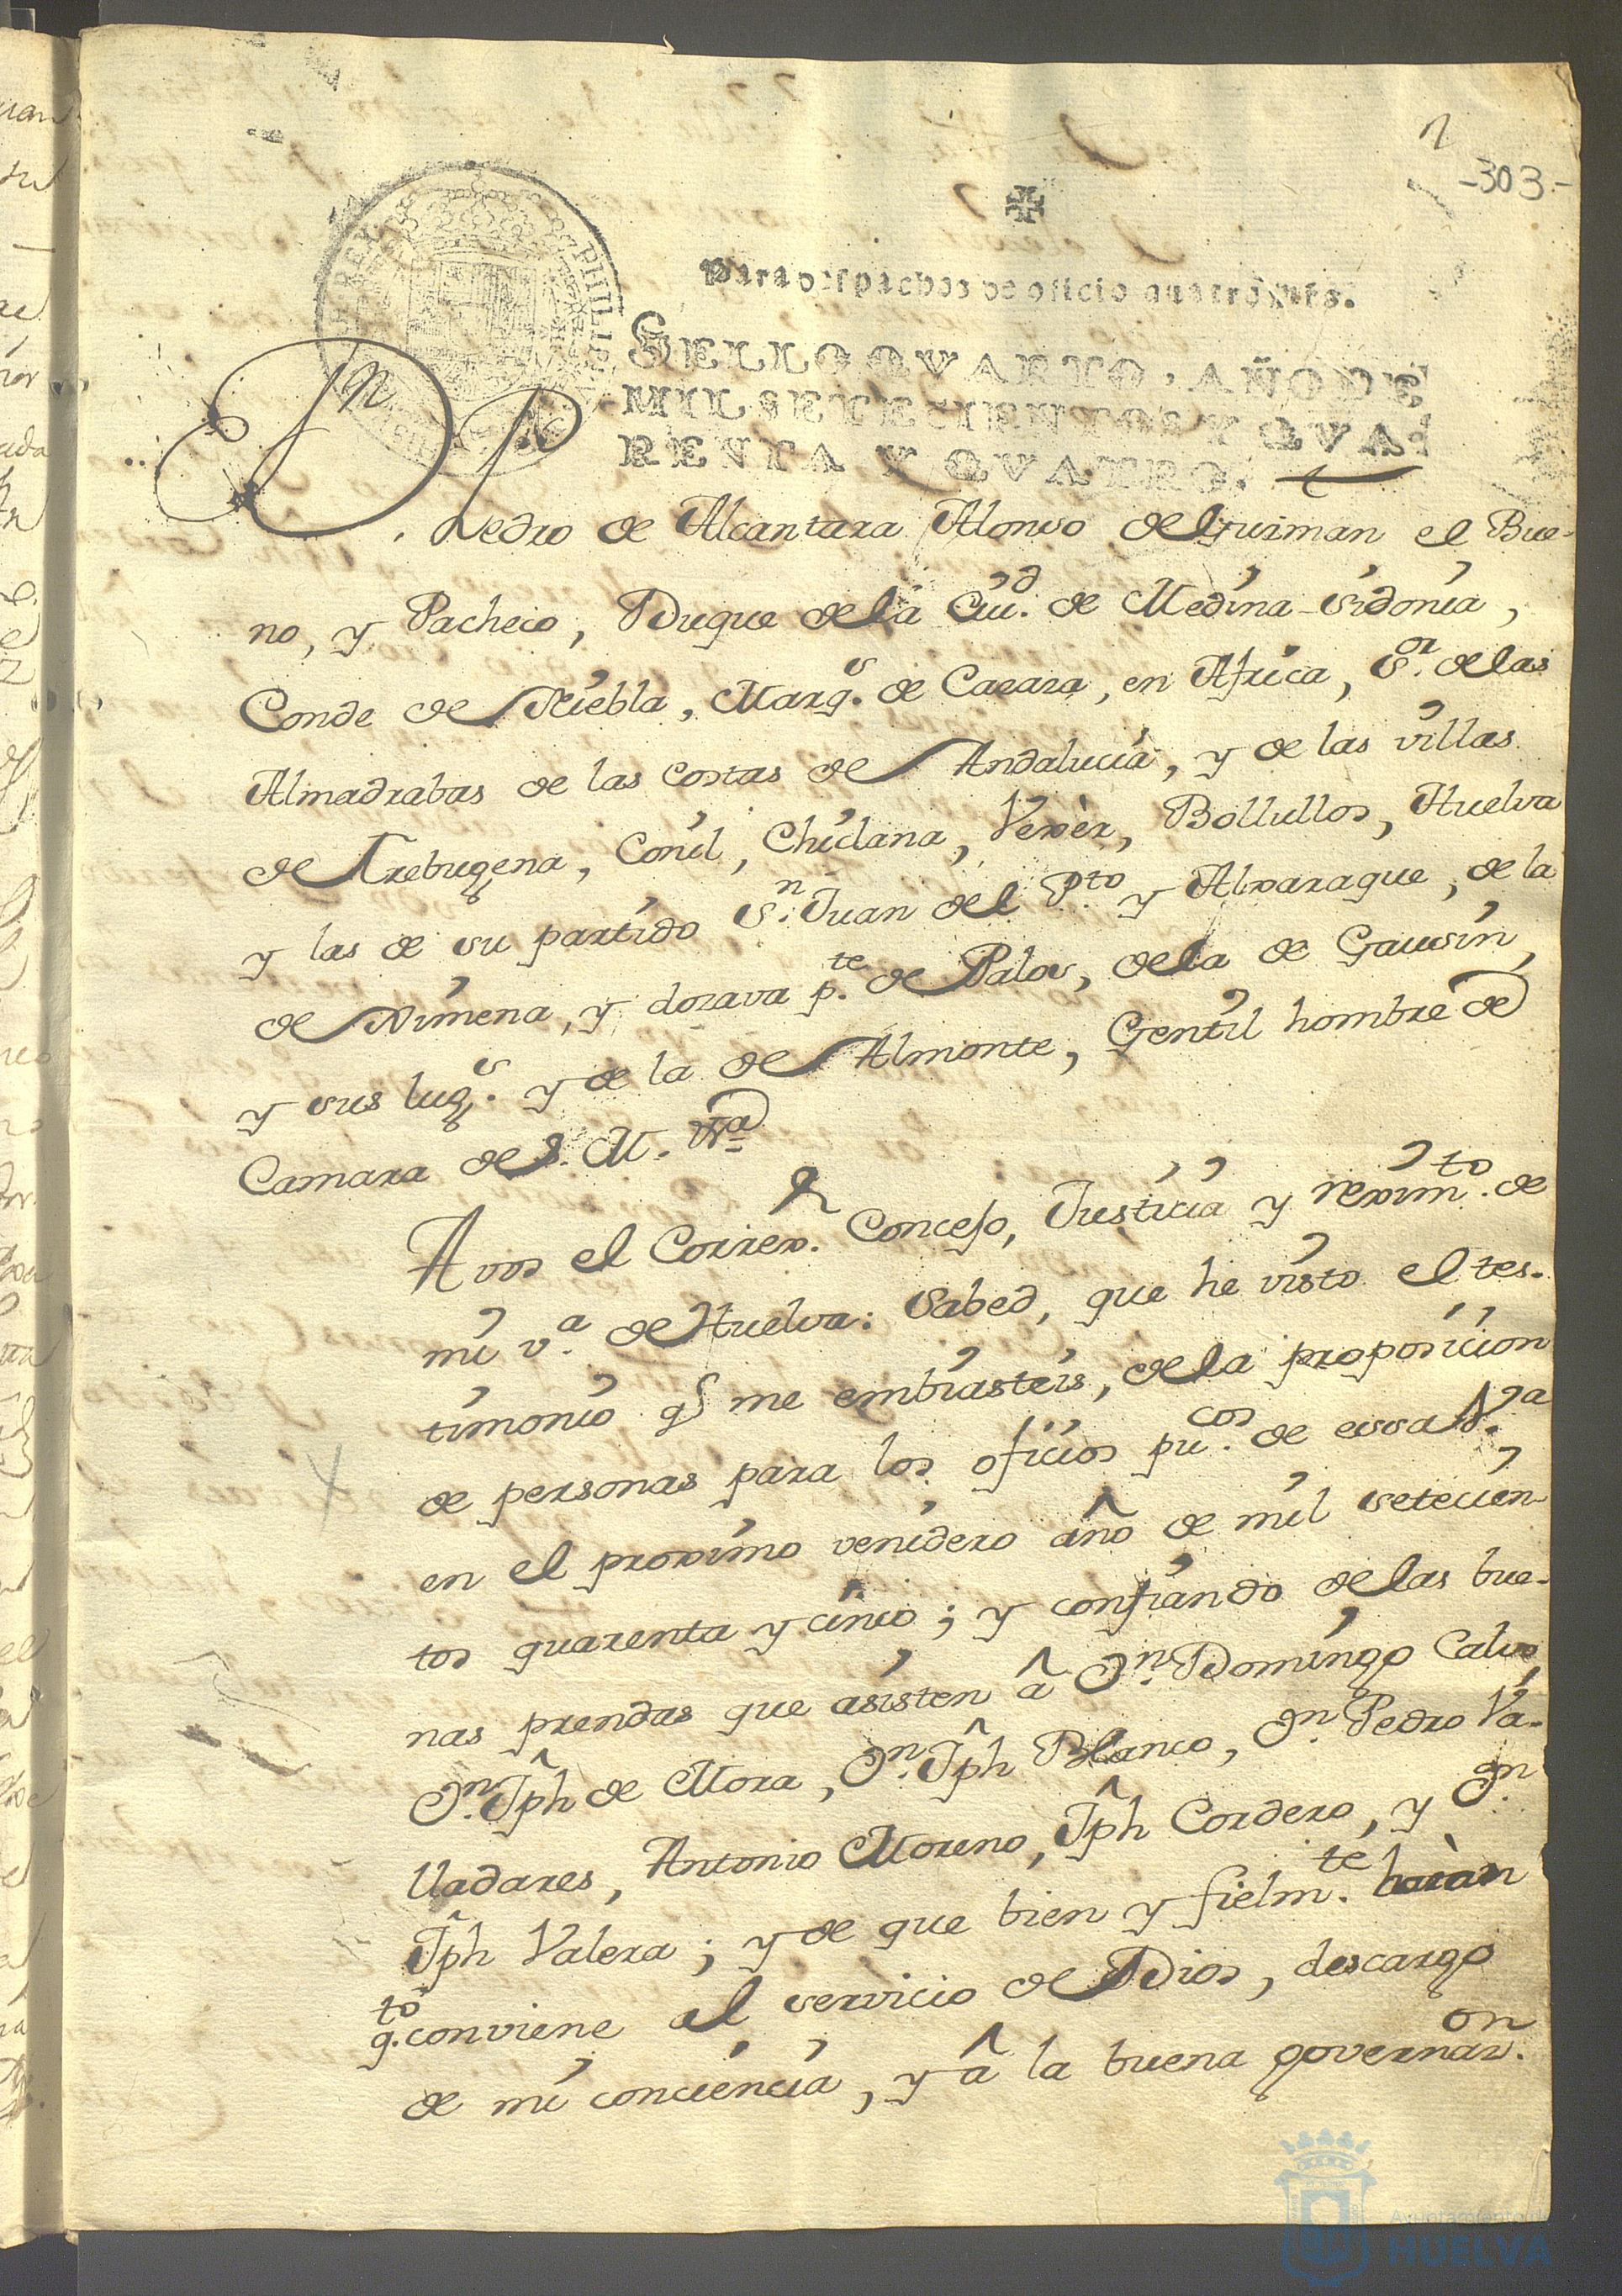 -303-
✠
Para despachos de oficio quatro mrs.
SELLO QVARTO, AÑO DE
MIL SETECIENTOS Y QVA-
RENTA Y QVATRO.
Dn. Pedro de Alcantara Alonso de Guzman el Bue-
no, y Pacheco, Duque de la Ciud. de Medina Sidonia,
Conde de Niebla, Marqs. de Cazaza, en Africa, Sor. de las
Almadrabas de las costas de Andalucia, y de las villas
de Trebugena, Conil, Chiclana, Vexèr, Bollullos, Huelva
y las de su partido Sn. Juan del Pto. y Alxaraque, de la
de Ximena, y dozava pte. de Palos, de la de Gausin,
y sus lugs. y de la de Almonte, Gentil hombre de
Camara de S. M. &a
A vos el Correxr. Concejo, Justicia y reximto. de
mi va. de Huelva: Sabed, que he visto el tes-
timonio q me embiasteis, de la proposicion
de personas para los oficios pucos. de essa Va.
en el proximo venidero año de mil setecien-
tos quarenta y cinco; y confiando de las bue-
nas prendas que asisten â Dn. Domingo Calvo,
Dn. Jph de Mora, Dn. Jph Blanco, Dn. Pedro Va-
lladares, Antonio Moreno, Jph Cordero, y Dn.
Jph Valera; y de que bien y fielmte. haràn
qto. conviene al servicio de Dios, descargo
de mi conciencia, y â la buena governazon.
Ayuntamiento de
HUELVA